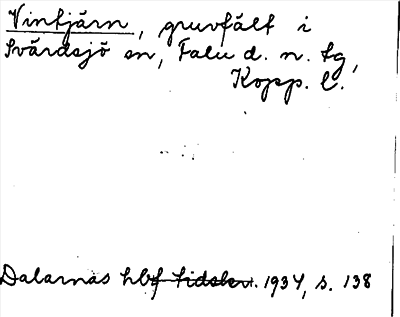 Vintjärn, gruvfält i
Svärdsjö sn, Falu d. n. tg,
Kopp. l.
Dalarnas hbf tidskr. 1934, s. 138